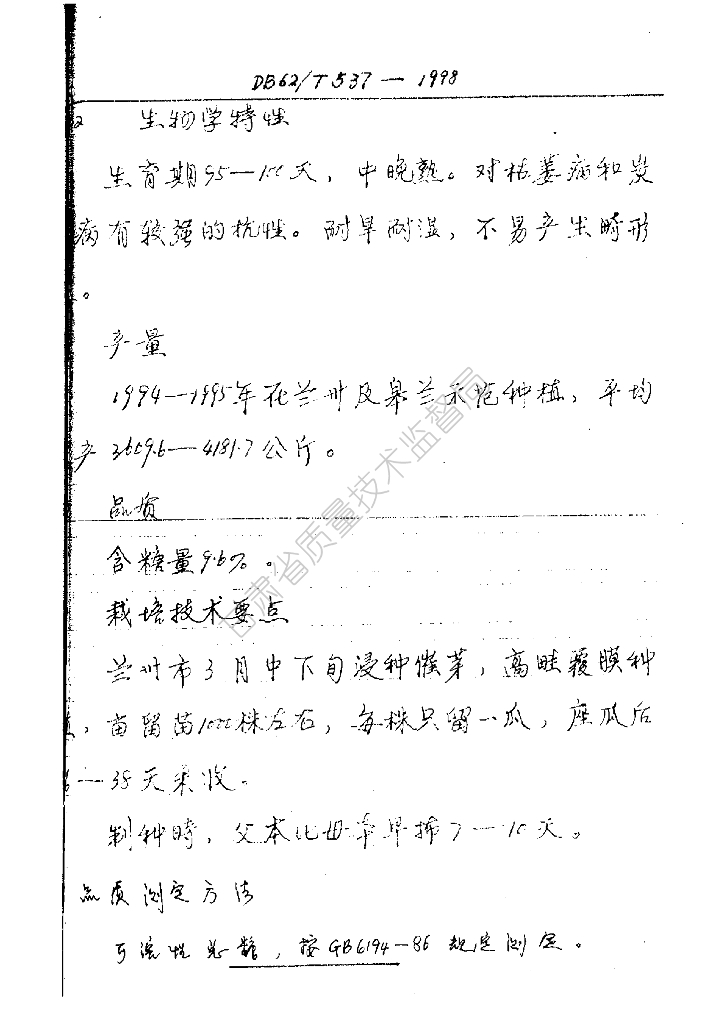 DB62/T 537—1998
2 生物学特性
生育期95—100天，中晚熟。对枯萎病和炭
病有较强的抗性。耐旱耐湿，不易产生畸形
。
产量
1994—1995年在兰州及皋兰示范种植，平均
产3609.6—4181.7公斤。
品质
含糖量9.6%。
栽培技术要点
兰州市3月中下旬浸种催芽，高畦覆膜种
，亩留苗1000株左右，每株只留一瓜，座瓜后
—38天采收。
制种时，父本比母本早播7—10天。
品质测定方法
可溶性总糖，按GB6194—86规定测定。
甘肃省质量技术监督局